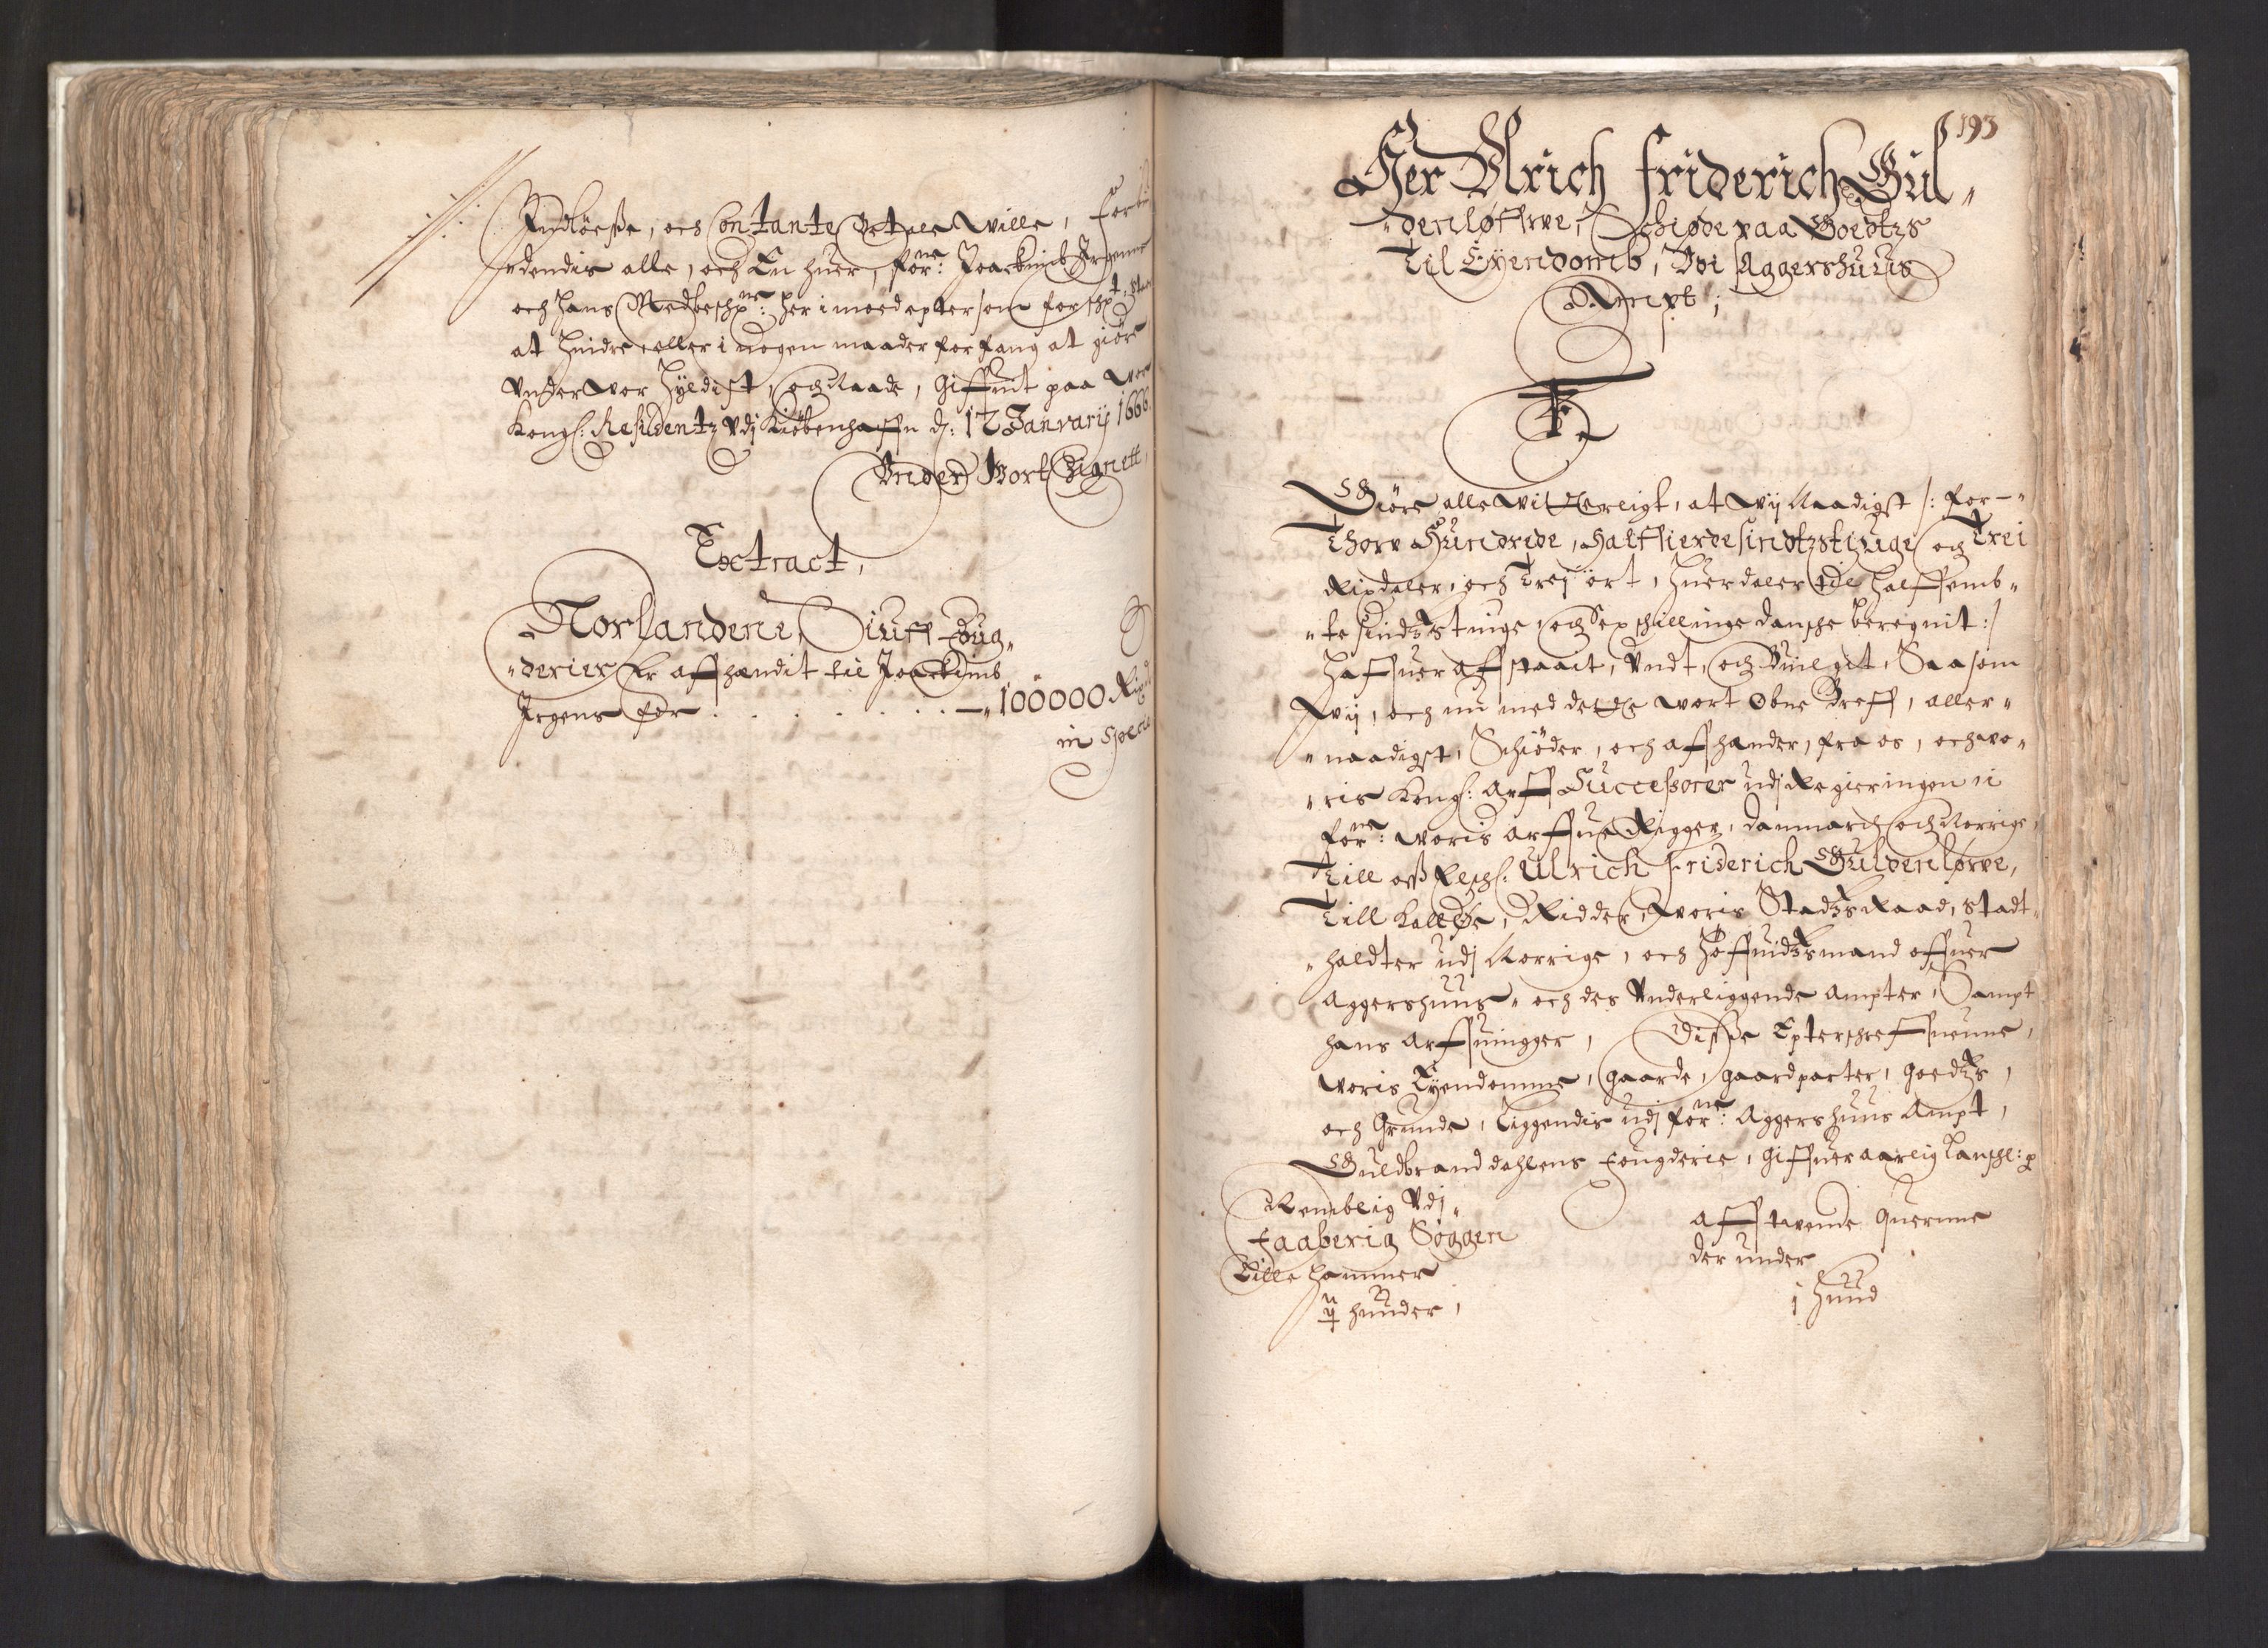 Indløesse, och Contante Betale wille, Forbiu
"dendis alle, och En huer, forne: Joachimb Irgenns
och hans Medbeschrne: her imoed epter som forscht: staar
at hindre eller i nogen maader forfang at giöre
Vnder vor Hyldist, och Naade, Giffuit paa Vor
Kongl: Residentz Vdj Kiöbenhaffn d: 12 Januarij 1666.
Vnder Wort Zignett,
Extract,
Norlandene, Siuff Foug"
"derier Er affhændit til Joachimb
Irgens for . . . . . . . — 100000 Rixd
in Specie
193
Her Ulrich Friderich Gül"
"denløffwe, Schiøde paa Goedtzs
Til Eyendomb, Vdi Aggershuus
Ampt;
F. 3.
Giöre alle witterligt, at wij Naadigst /: for-"
Thoru Hundrede, Halffierdesindtzstiuge och Trei
Rixdaler, och Trej ört, huer daler til halffemb"
"te sindtzstiuge, och Sex schillinge dansche beregnit :/
Haffuer affstaait, Vndt, och Beuilgit, Saa som
Wij, och nu med dette wort Obne Breff, aller"
"naadigst, Schiöder, och affhander, fra os, och wo"
"ris Kongl: Arff Successorer udj Regieringen ii
forne: woris Arffue Rigger, Danmarch och Norrige,
Till oss Elschl: Ulrich Friderich Güldenløwe,
Till Kalløe, Ridder, woris Stadtzs Raad, Stadt"
"haldter udj Norrige, och Höffuidtzsmand offuer
Aggershuus" och des Vnderliggende Ampter, Sampt
hans Arffuingger, Disse Epterschreffuenne,
woris Eyendomme, Gaarde, Gaardparter, Goedtzs,
och Grunde, Liggendis udj forne: Aggershuus Ampt,
Guldbrand dahlens Fougderie, Giffuer aarlig Landschl:
Nemblig Vdj"
Faaberig Soggen
Lille hammer
ij huuder,
Aff tvende Querne
der under
j huud